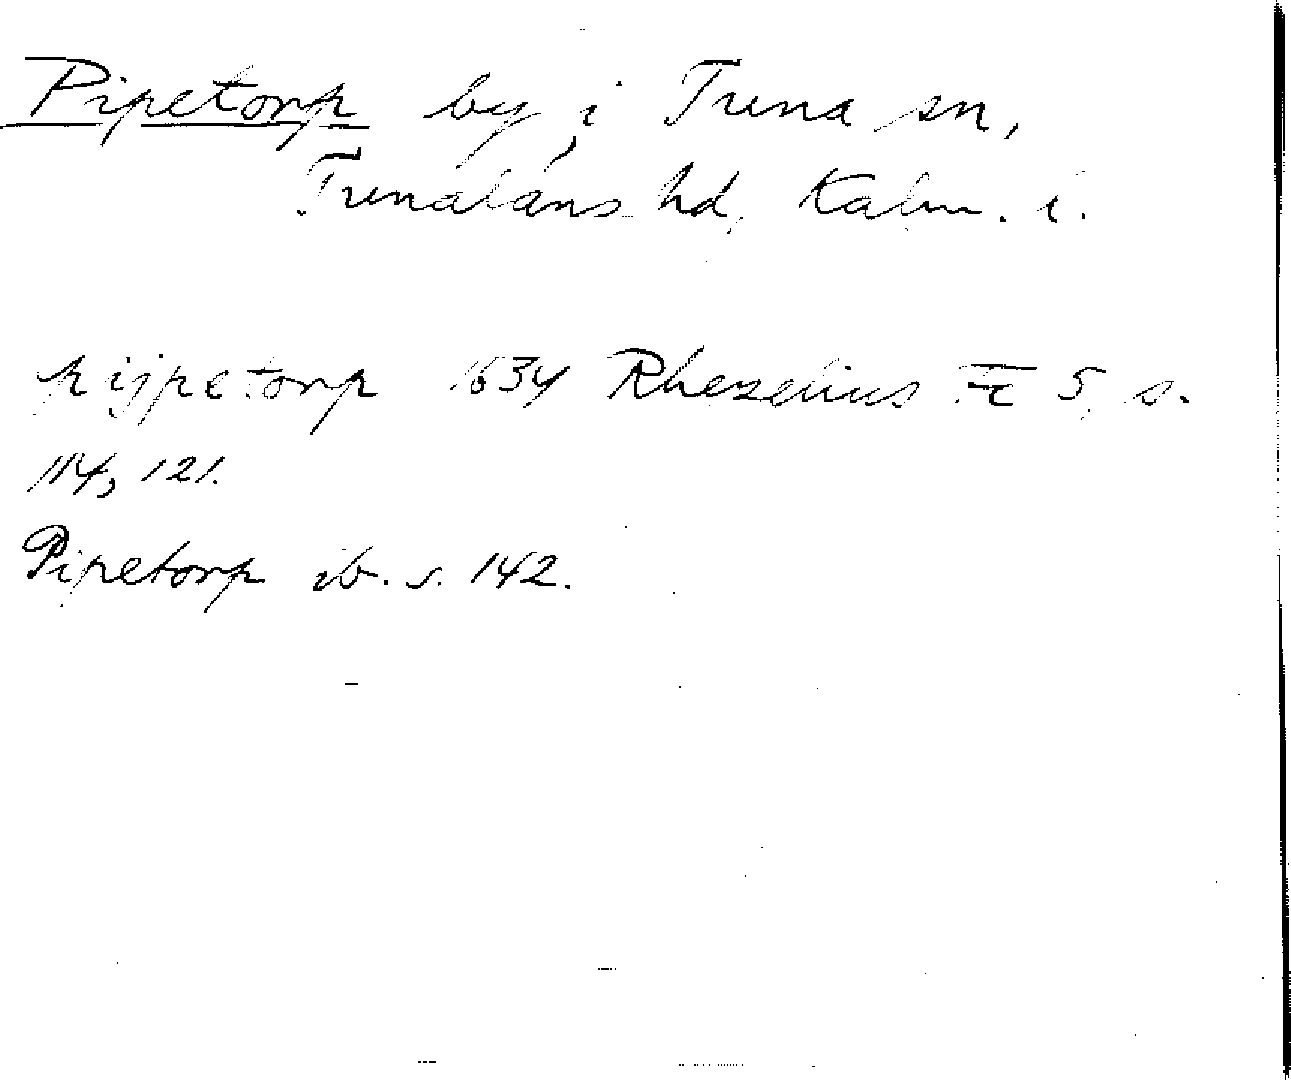 Pipetorp by, i Tuna sn,
Tunaläns hd, Kalm. l.
pijpetorp 1634 Rhezelius Fc 5, s.
114, 121.
Pipetorp ib. s. 142.